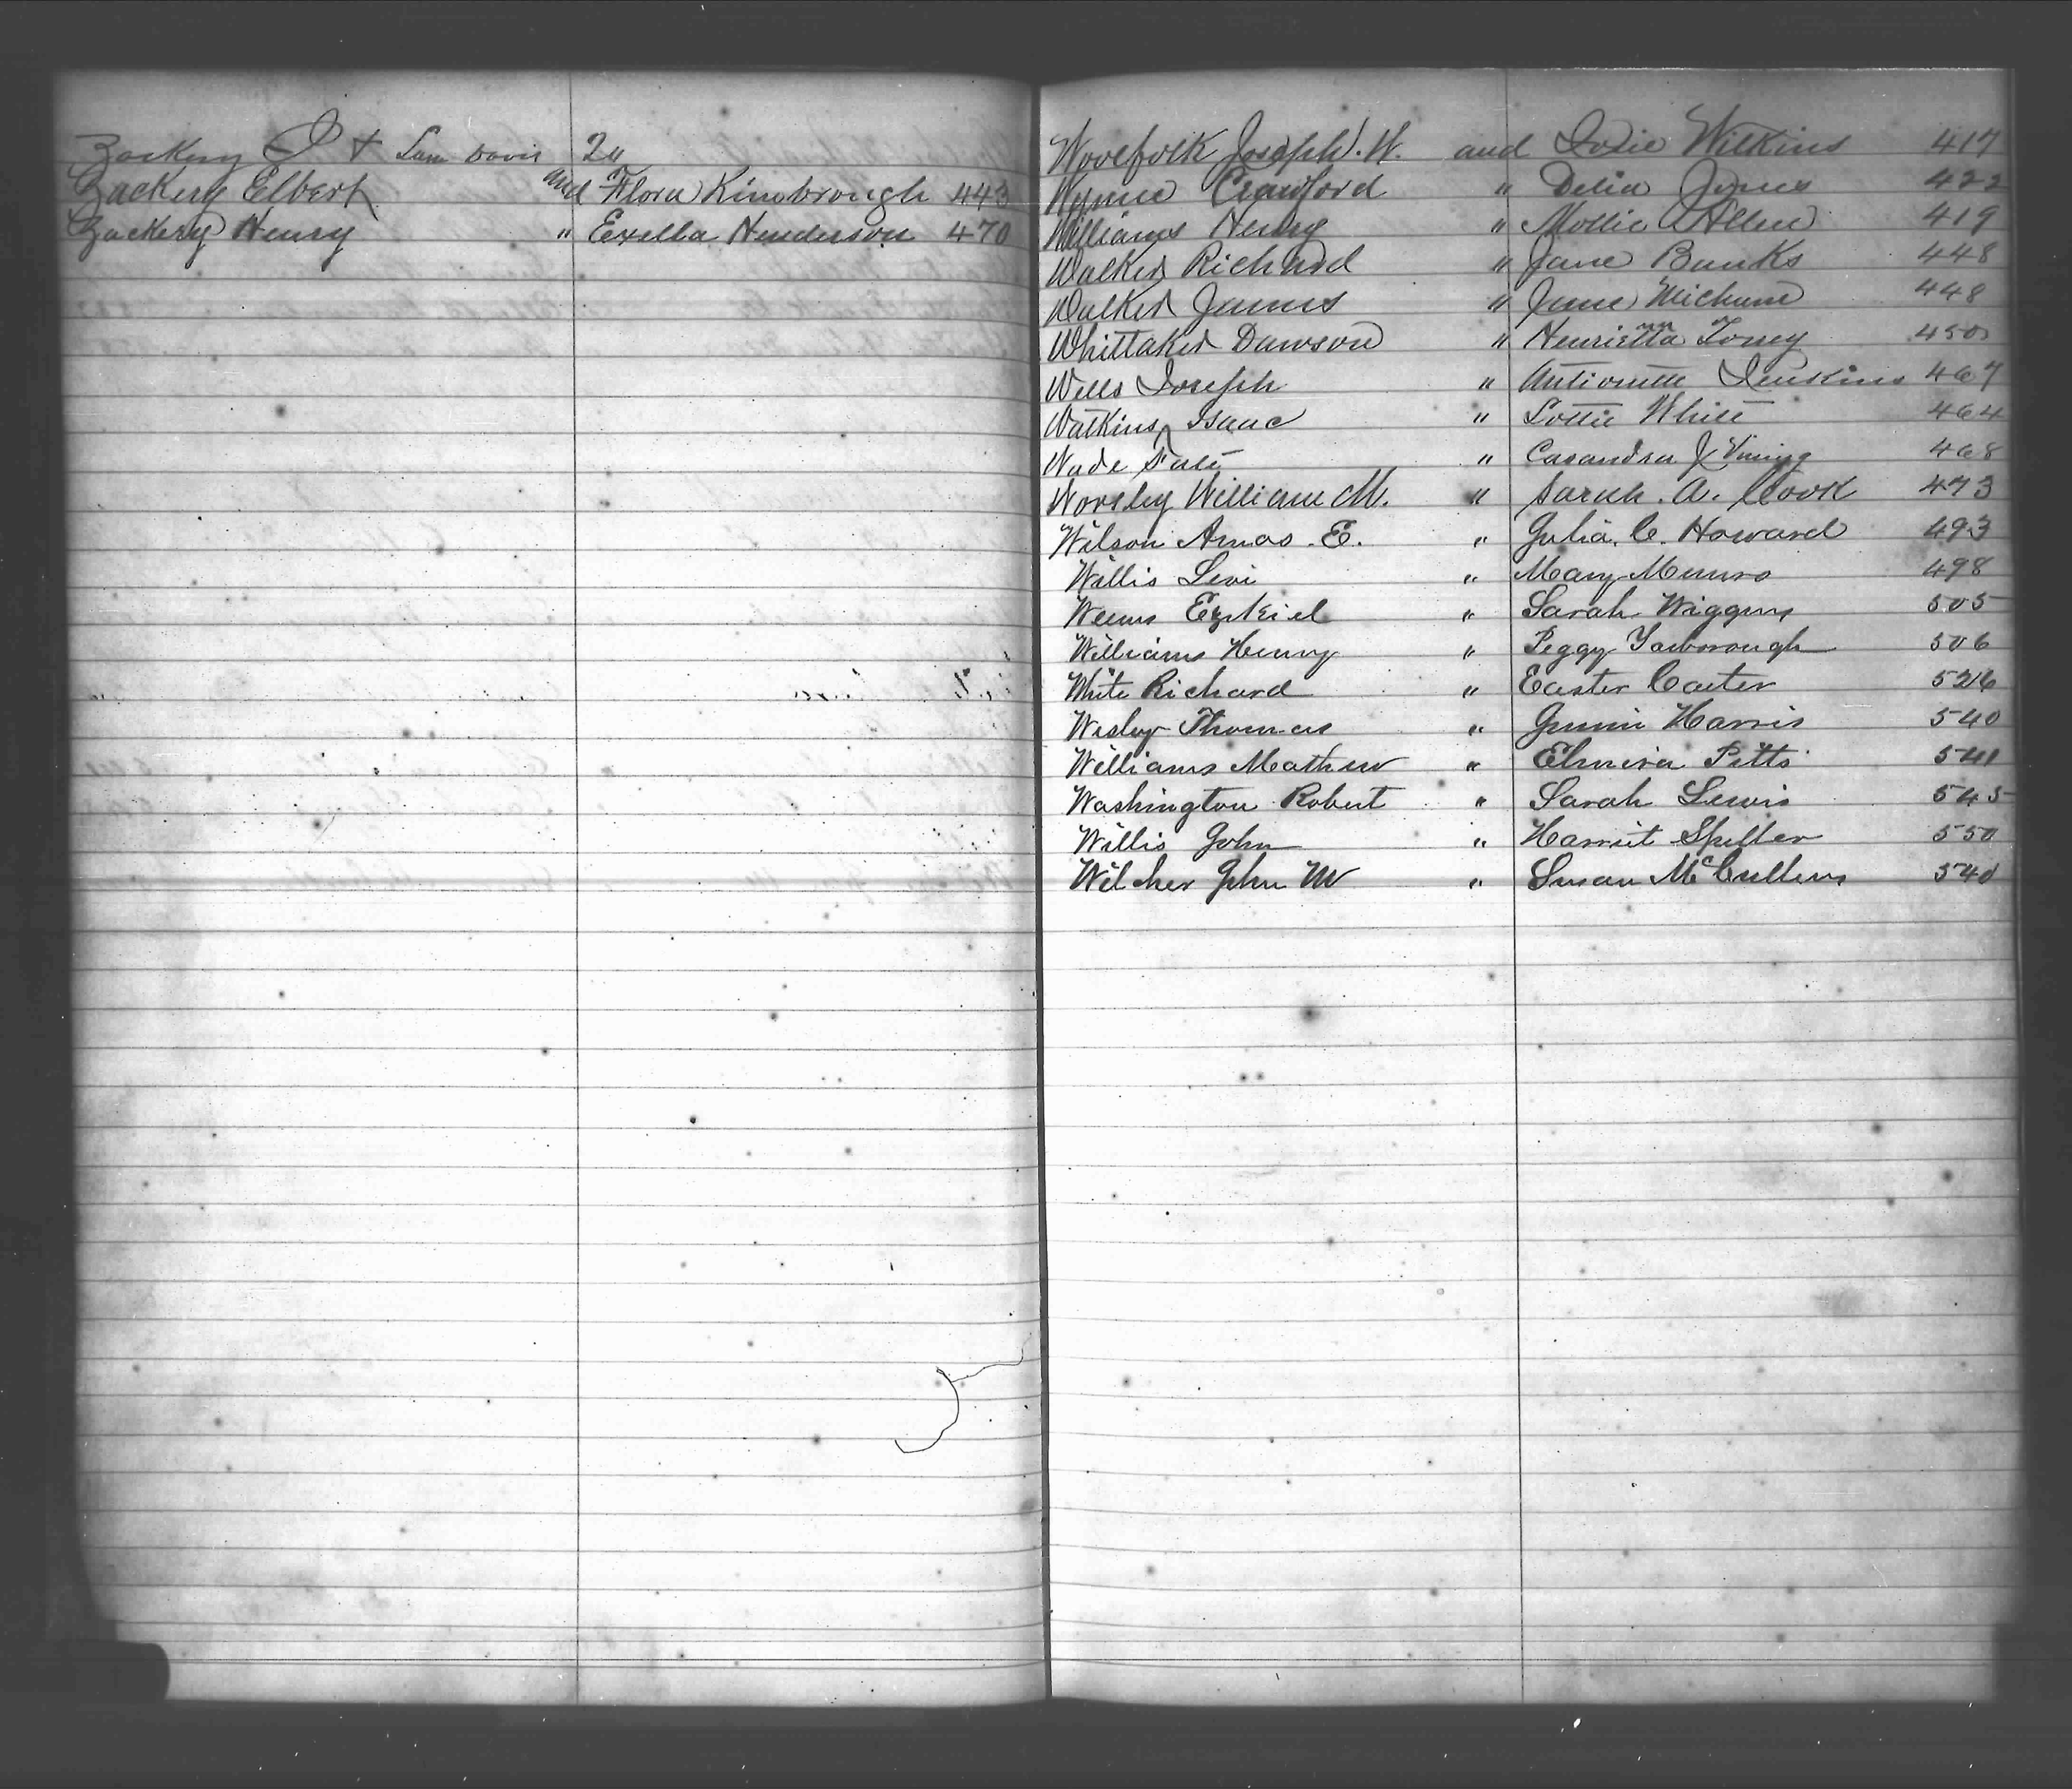 Zackery J + Sam Davis 20
Zackery Elbert and Flora Kimbrough 443
Zackery Henry " Exella Henderson 470
Woolfolk Joseph. W. and Josie Wilkins 417
Wynne Crawford " Delia Jones 422
Williams Henry " Mollie Allen 419
Walker Richard " Jane Banks 448
Walker James " June 448
Whittaker Dawson " Henrietta Toney 450
Wells Joseph " Antionette Jenkins 467
Watkins, Isaac " Lottie White 464
Wade " Casandra J Vining 468
Worsley William M. " Sarah. A. Cook 473
Wilson Amos. E. " Julia. C. Howard 493
Willis Levi " Mary Munro 498
Weems Ezekiel " Sarah Wiggins 505
Williams Henry " Peggy Yarborough 506
White Richard " Easter Carter 526
Wesley Thomas " Jennie Harris 540
Williams Mathew " Elmira Pitts 541
Washington Robert " Sarah Lewis 545
Willis John " Harriet Spiller 550
Wilcher John W " Susan McCullens 540